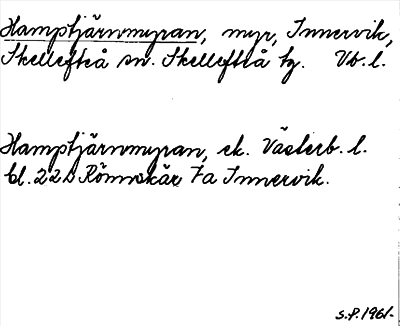 Hamptjärnmyran, myr, Innervik,
Skellefteå sn. Skellefteå tg. Vb. l.
Hamptjärnmyran, ek. Västerb. l.
bl. 22D Rönnskär 7a Innervik.
S.P. 1961.